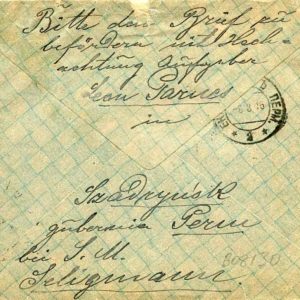 Bitte den Brief zu
befördern mit Hoch-
achtung Aufgeber
Leon Parnes
in
Szadryńsk
gubernia Perm
bei S. M.
Seligmann.